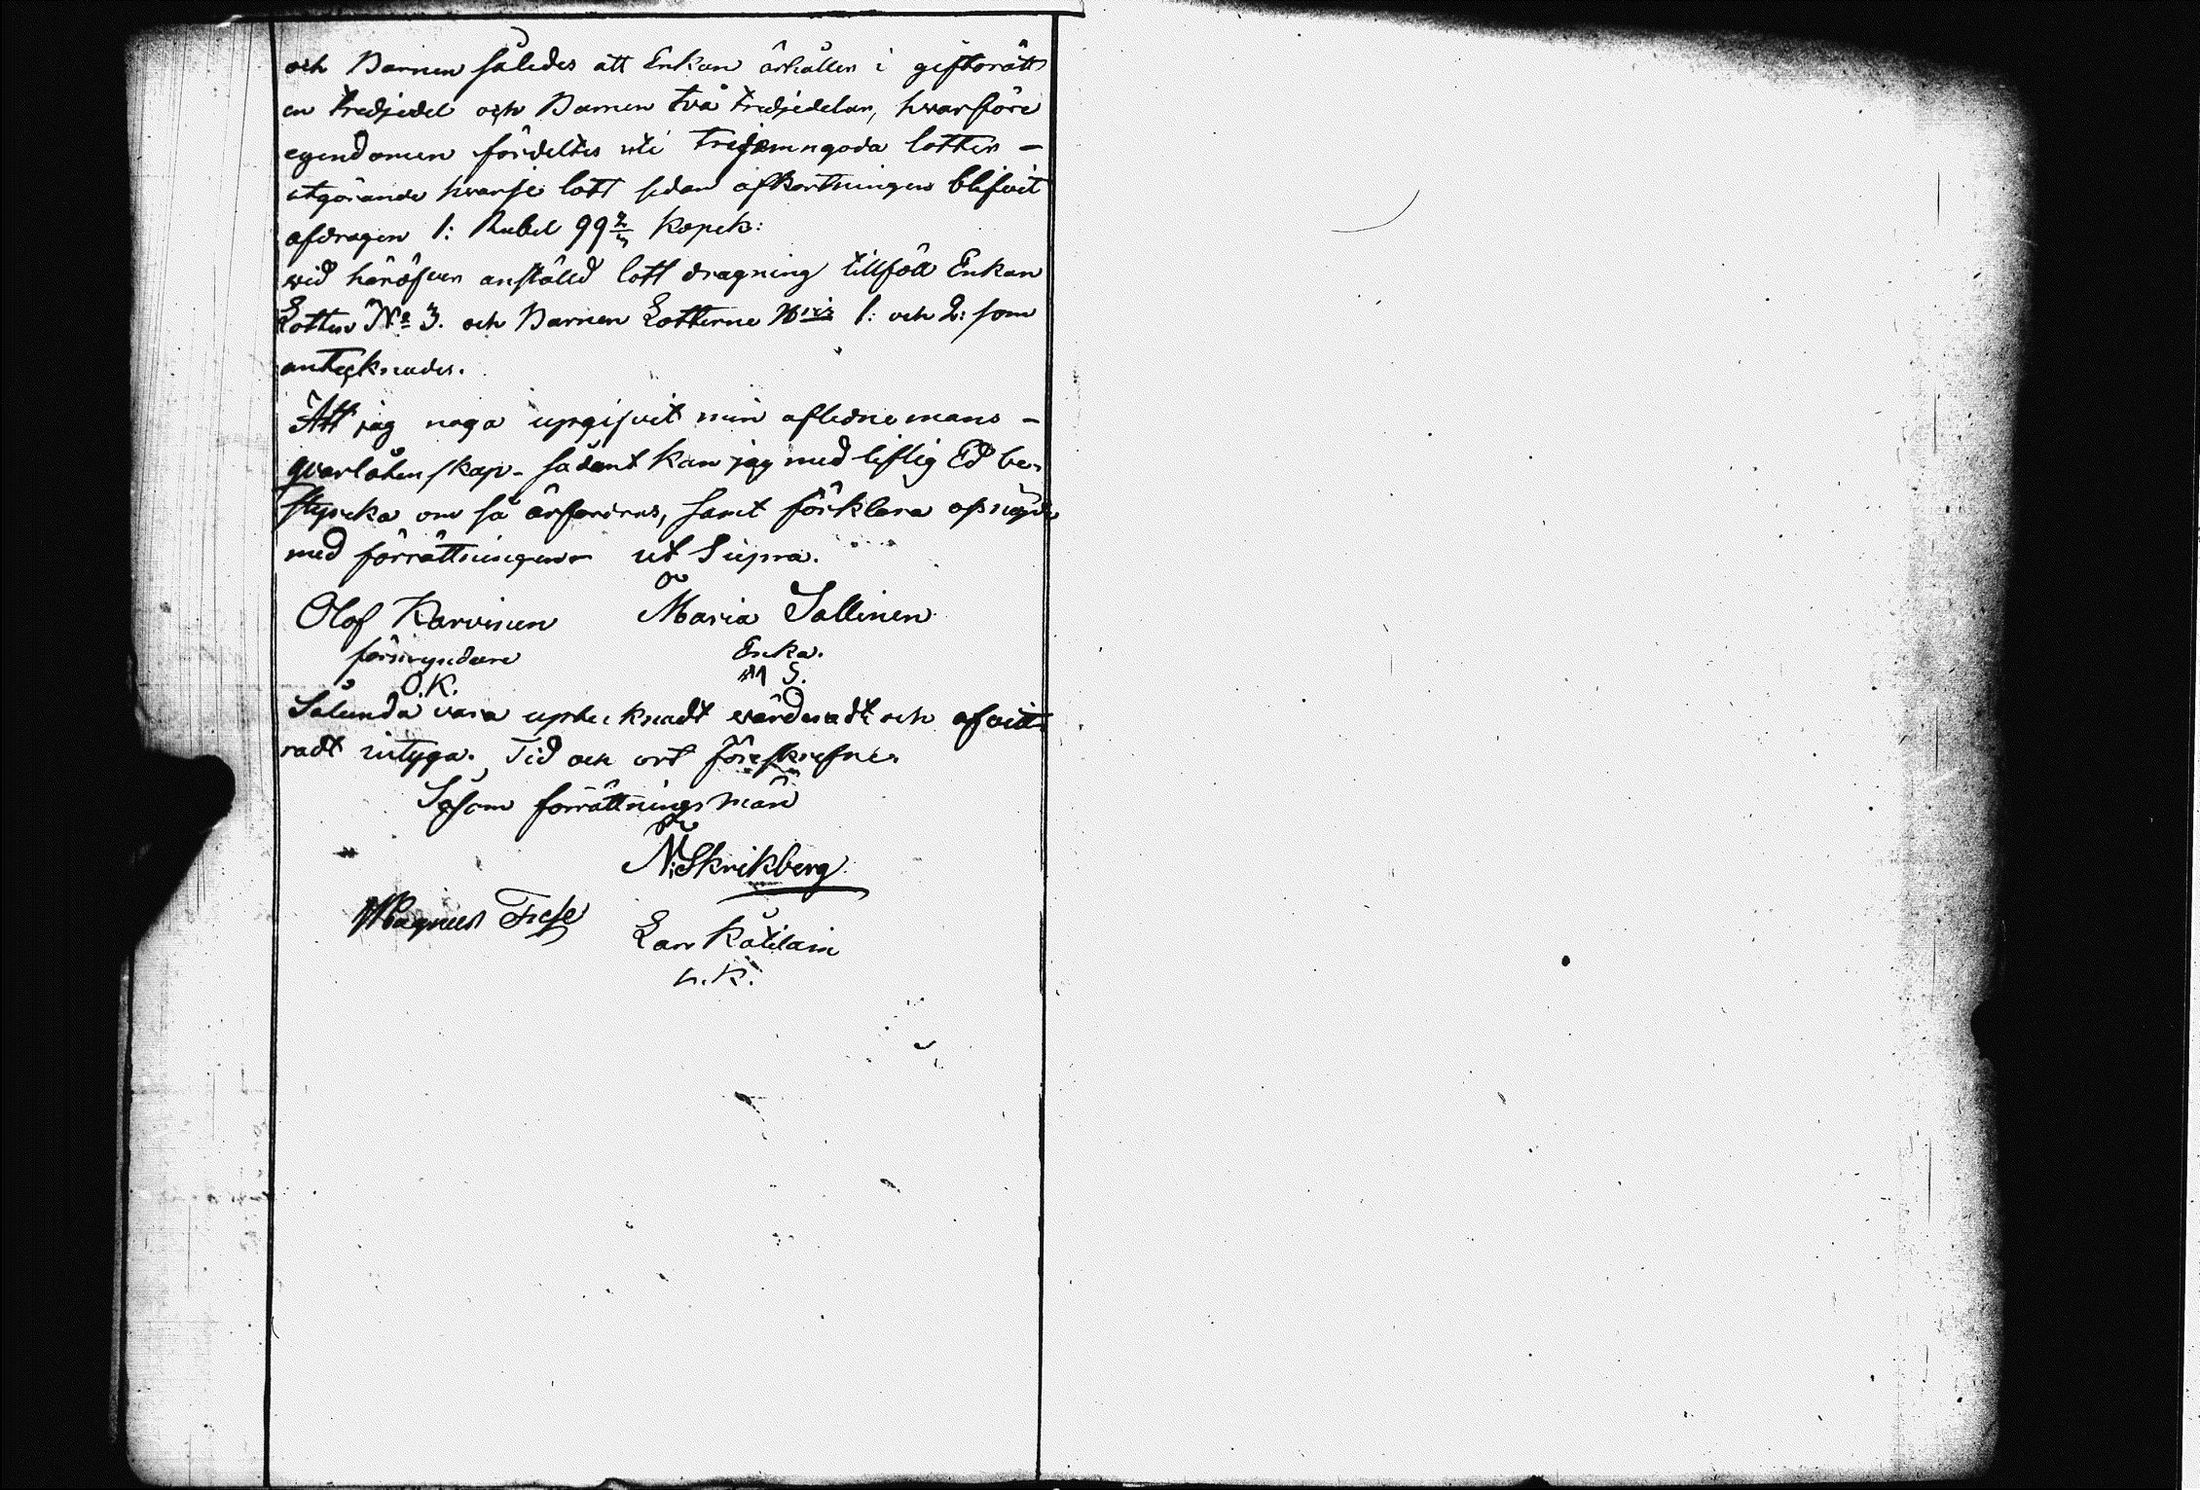 och Barnen således att Enkan ärhåller i giftorätt
en tredjedel och Barnen två tredjedelar, hvarföre
egendomen fördeltes uti tre jemngoda lotter –
utgörande hvarje lott sedan afkortningen blifvit
afdragen 1: Rubel 99 2/3 Kopek:
wid häröfver anstäld lott dragning tillföll Enkan
Lotten No 3. och Barnen Lotterne N:ris 1: och 2: som
antecknades.
Att jag noga upgifvit min aflednemans –
qvarlåtenskap – sådant kan jag med liflig Ed be-
styrcka om så ärfordras, samt förklara oss nögde
med förrättningen – ut Supra.
Olof Karvinen Maria Sallinen
förmyndare Enka.
O.K. M S.
Sålunda vara uptecknadt wärderadt och afvitt-
radt intyga. Tid och ort föreskrefne.
Såsom förrättningsmän
N: Skrikberg
Magnus Lars Kätilain
L.K.